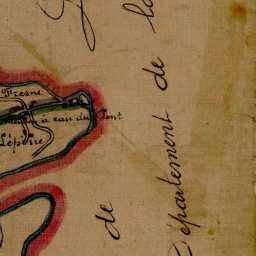 Fresne
a eau du Pont
Lépine
de
Département de la